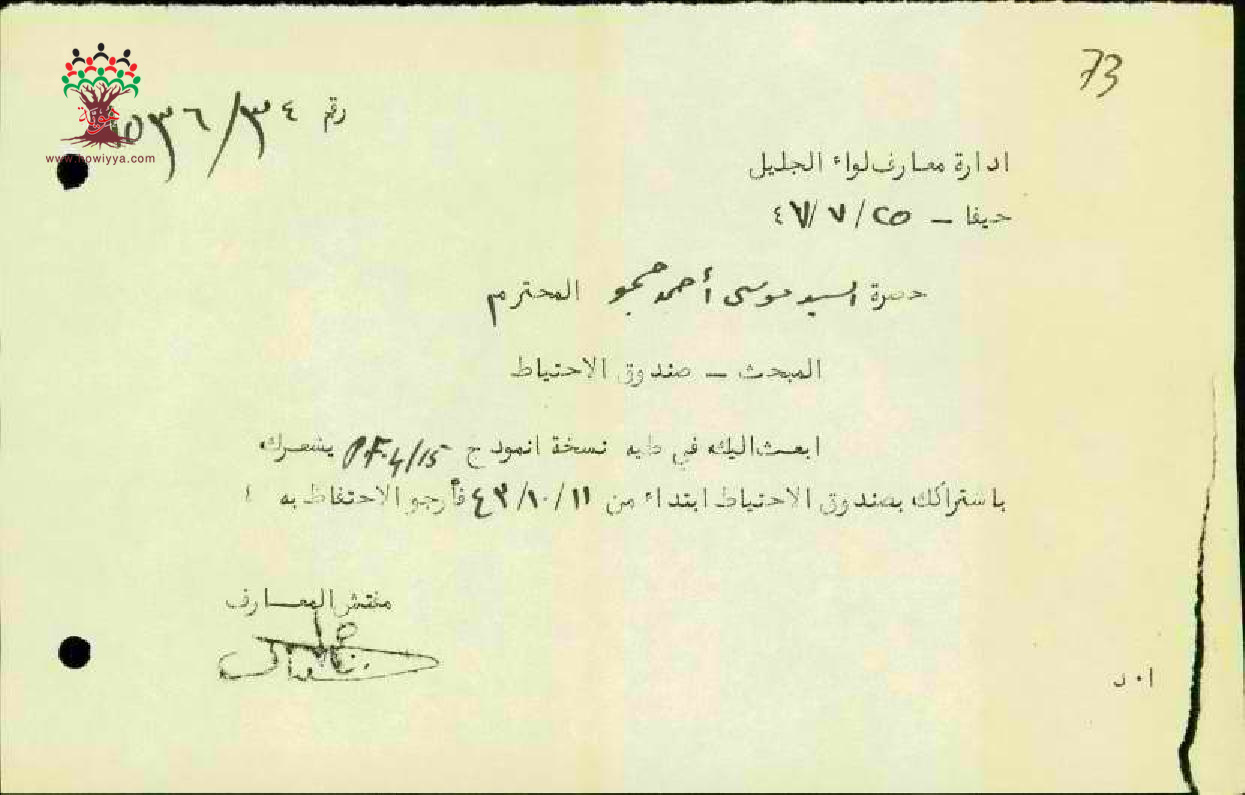 73
رقم ٣٤/٥٣٦
هوية
www.howiyya.com
ادارة معارف لواء الجليل
حيفا - ٢٥/٧/٤٦
حضرة السيد موسى أحمد حجو المحترم
المبحث - صندوق الاحتياط
ابعث اليك في طيه نسخة انموذج P.F.4/15 يشعرك
باشتراكك بصندوق الاحتياط ابتداء من ١١/١٠/٤٣ فأرجو الاحتفاظ به
مفتش المعارف
ا٠د